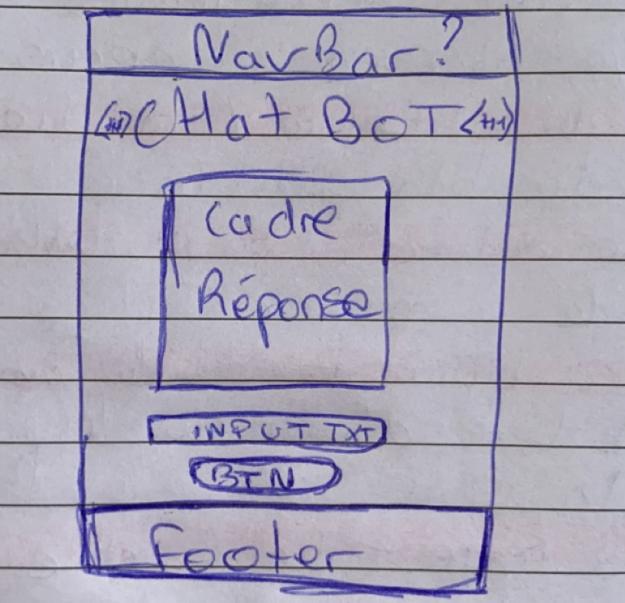 NavBar?
<H1>CHat BoT<H1>
Cadre
Réponse
INPUT TXT
BTN
Footer